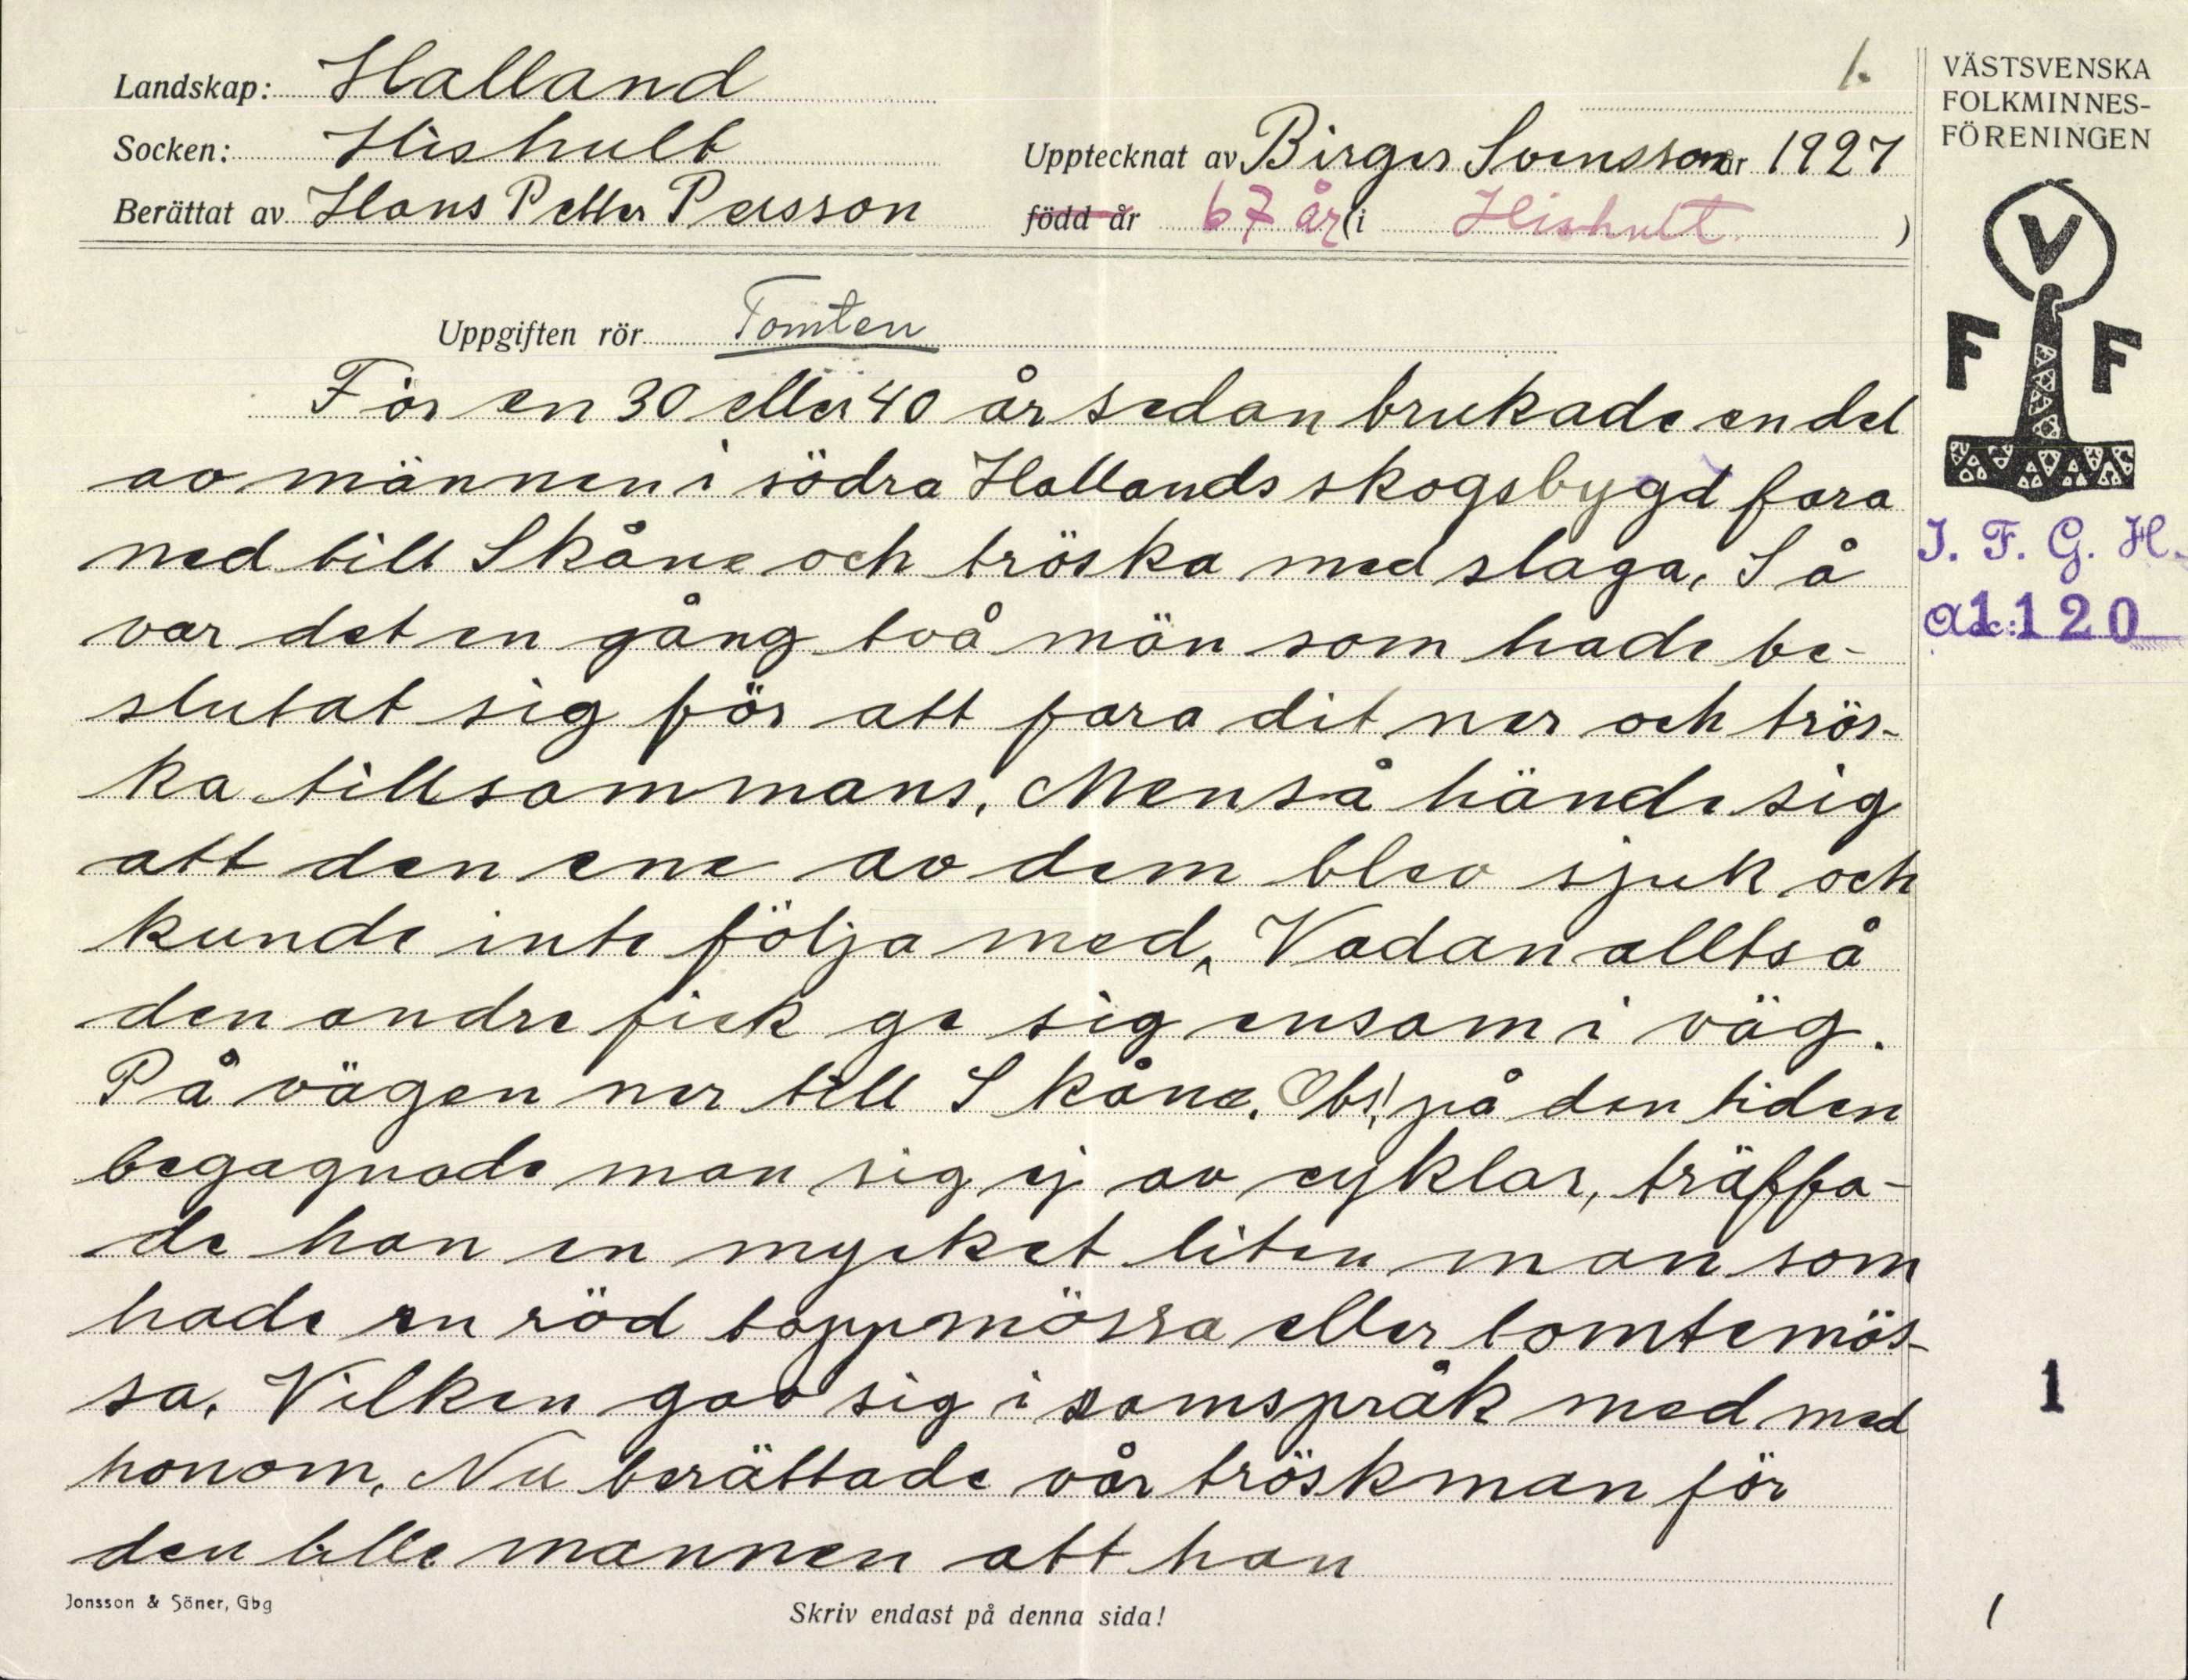 Landskap: Halland
Socken: Hishult
Berättat av Hans Petter Persson
1.
Upptecknat av Birger Svensson år 1927
född år 67 år (i Hishult. )
VÄSTSVENSKA
FOLKMINNES-
FÖRENINGEN
V
F F
I. F. G. H.
1120
Uppgiften rör Tomten
För en 30 eller 40 år sedan brukade en del
av männen i södra Hallands skogsbygd fara
ned till Skåne och tröska med slaga, Så
var det en gång två män som hade be-
slutat sig för att fara dit ner och trös-
ka tillsammans, Men så hände sig
att den ene av dem blev sjuk och
kunde inte följa med, Vadan alltså
den andre fick ge sig ensam i väg.
På vägen ner till Skåne. Obs! på den tiden
begagnade man sig ej av cyklar, träffa-
de han en mycket liten man som
hade en röd toppmössa eller tomtemös-
sa, Vilken gav sig i samspråk med med
honom, Nu berättade vår tröskman för
den lille mannen att han
1
Jonsson & Söner, Gbg
Skriv endast på denna sida!